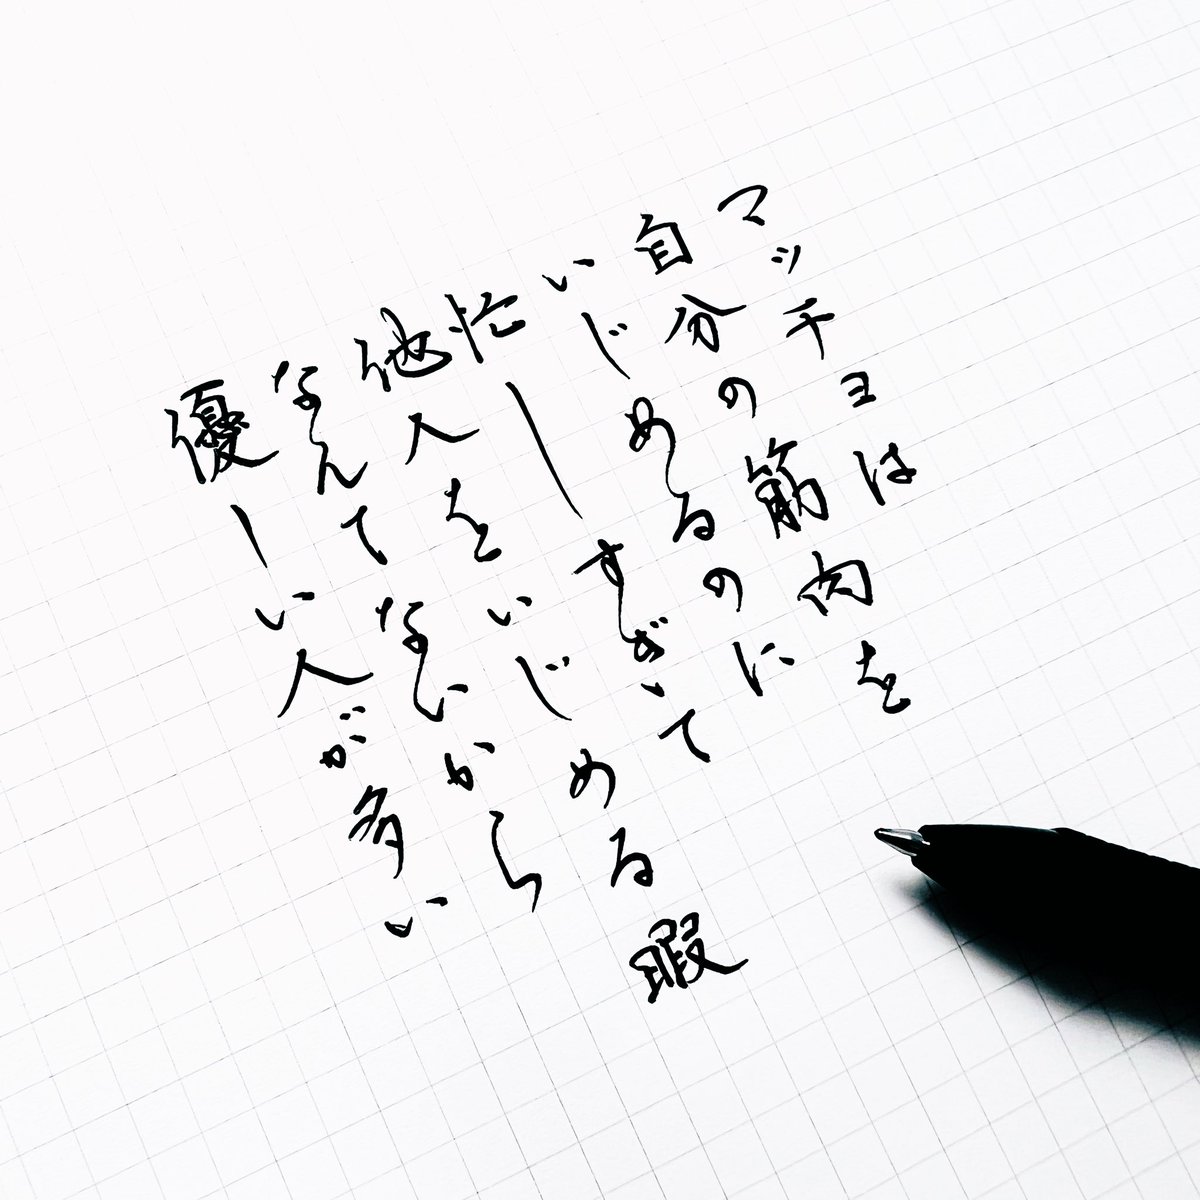 マッチョは
自分の筋肉を
いじめるのに
忙しすぎて
他人をいじめる暇
なんてないから
優しい人が多い